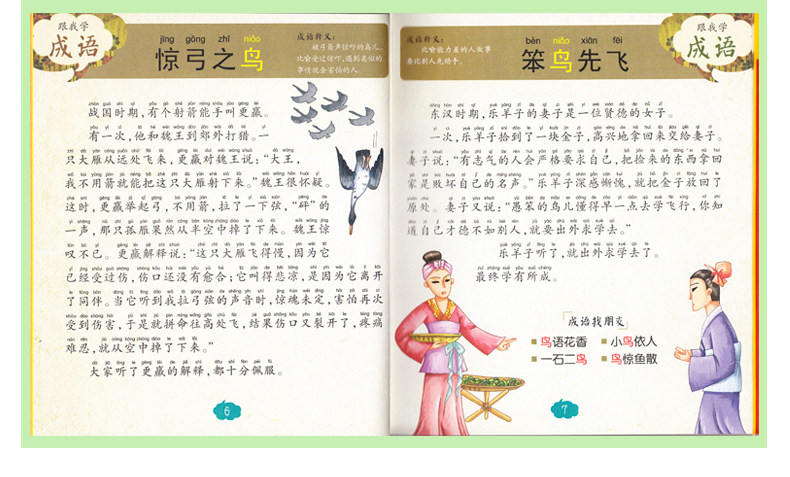 跟我学
成语
jīng gōng zhī niǎo
惊弓之鸟
成语释义：
被弓箭声惊吓的鸟儿。
比喻受过惊吓，遇到类似的
事情就会害怕的人。
战国时期，有个射箭能手叫更赢。
有一次，他和魏王到郊外打猎。一
只大雁从远处飞来，更赢对魏王说：“大王，
我不用箭就能把这只大雁射下来。”魏王很怀疑。
这时，更赢举起弓，不用箭，拉了一下弦，“砰”的
一声，那只孤雁果然从半空中掉了下来。魏王惊
叹不已。更赢解释说：“这只大雁飞得慢，因为它
已经受过伤，伤口还没有愈合；它叫得悲凉，是因为它离开
了同伴。当它听到我拉弓弦的声音时，惊魂未定，害怕再次
受到伤害，于是就拼命往高处飞，结果伤口又裂开了，疼痛
难忍，就从空中掉了下来。”
大家听了更赢的解释，都十分佩服。
6
跟我学
成语
bèn niǎo xiān fēi
笨鸟先飞
成语释义：
比喻能力差的人做事
要比别人先动手。
东汉时期，乐羊子的妻子是一位贤德的女子。
一次，乐羊子拾到了一块金子，高兴地拿回来交给妻子。
妻子说：“有志气的人会严格要求自己，把捡来的东西拿回
家是败坏自己的名声。”乐羊子深感惭愧，就把金子放回了
原处。妻子又说：“愚笨的鸟儿懂得早一点去学飞行，你知
道自己才德不如别人，就要出外求学去。”
乐羊子听了，就出外求学去了。
最终学有所成。
成语找朋友
鸟语花香 小鸟依人
一石二鸟 鸟惊鱼散
7